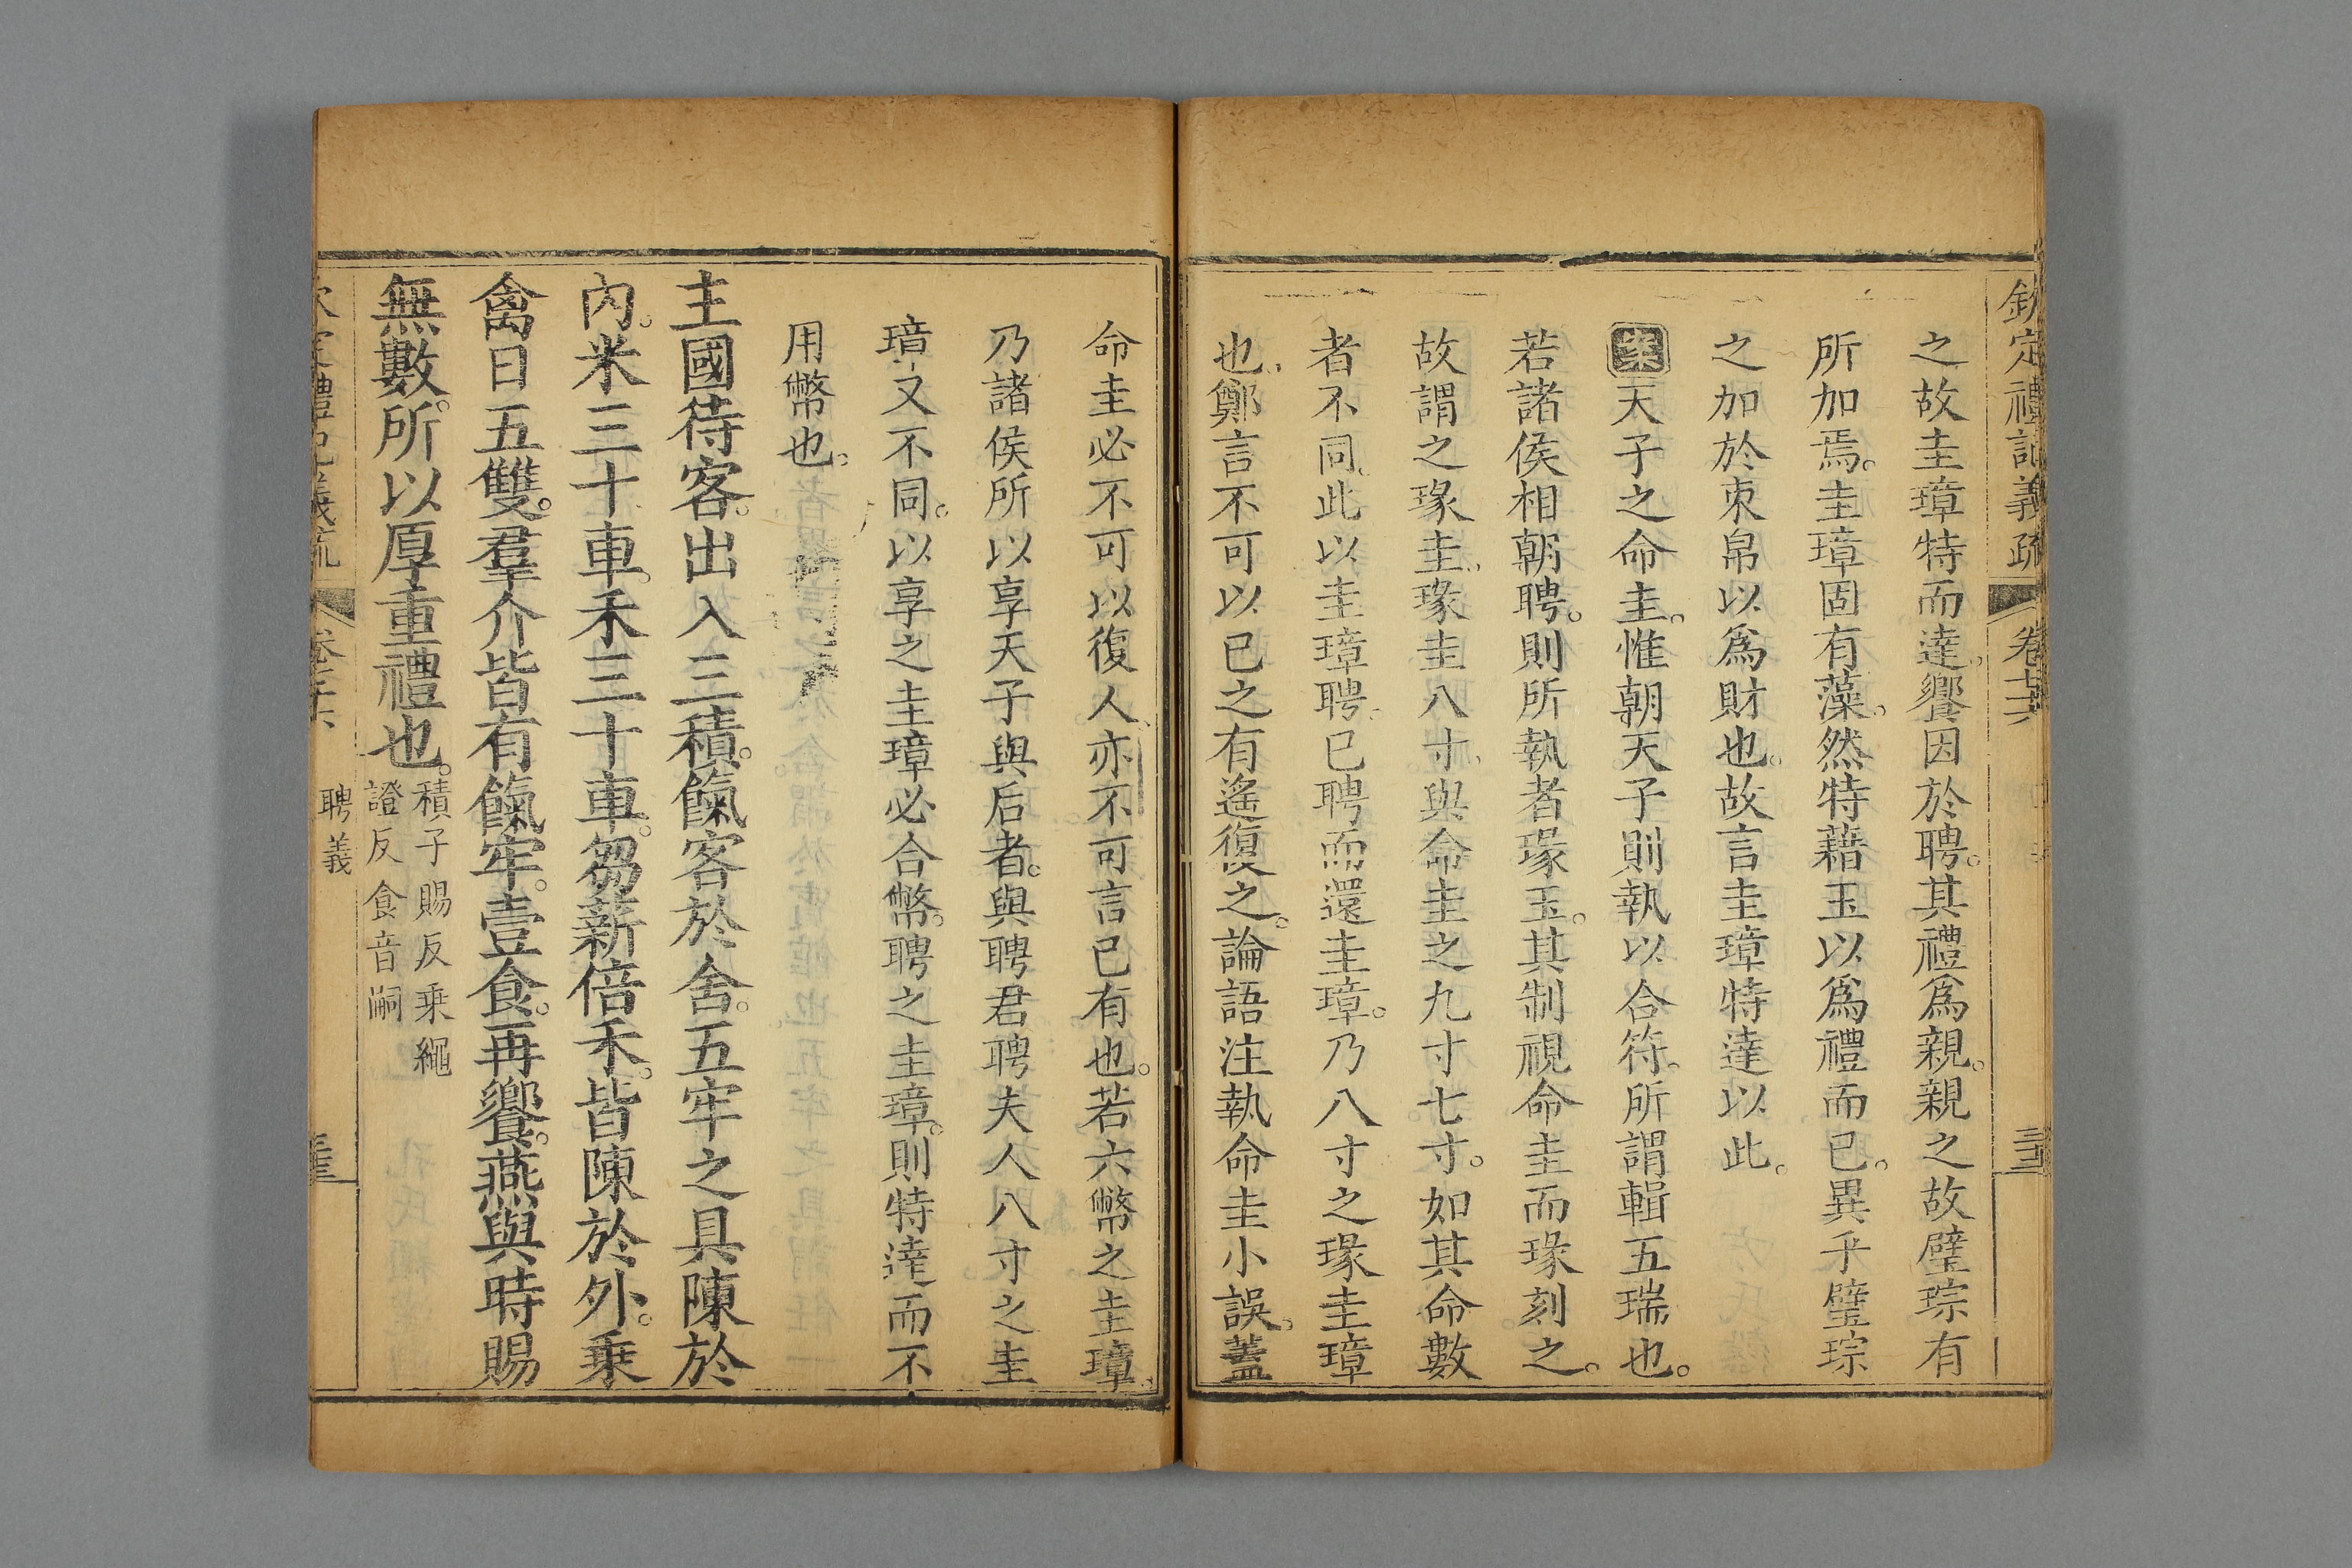 欽定禮記義疏 卷七十六
之故圭璋特而達饗因於聘。其禮爲親。親之故璧琮有
所加焉。圭璋固有藻。然特藉玉以爲禮而已。異乎璧琮
之加於束帛以爲財也。故言圭璋特達以此。
案天子之命圭。惟朝天子則執以合符。所謂輯五瑞也。
若諸侯相朝聘。則所執者瑑玉。其制視命圭而瑑刻之。
故謂之瑑圭。瑑圭八寸。與命圭之九寸七寸。如其命數
者不同。此以圭璋聘。已聘而還圭璋。乃八寸之瑑圭璋
也。鄭言不可以已之有遙復之。論語注執命圭小誤。蓋
命圭必不可以復人。亦不可言已有也。若六幣之圭璋。
乃諸侯所以享天子與后者。與聘君聘夫人八寸之圭
璋又不同。以享之圭璋必合幣。聘之圭璋。則特達而不
用幣也。
主國待客。出入三積。餼客於舍。五牢之具陳於
內。米三十車。禾三十車。芻薪倍禾。皆陳於外。乘
禽日五雙。羣介皆有餼牢。壹食。再饗。燕與時賜
無數。所以厚重禮也。積子賜反乘繩
證反食音嗣
聘義